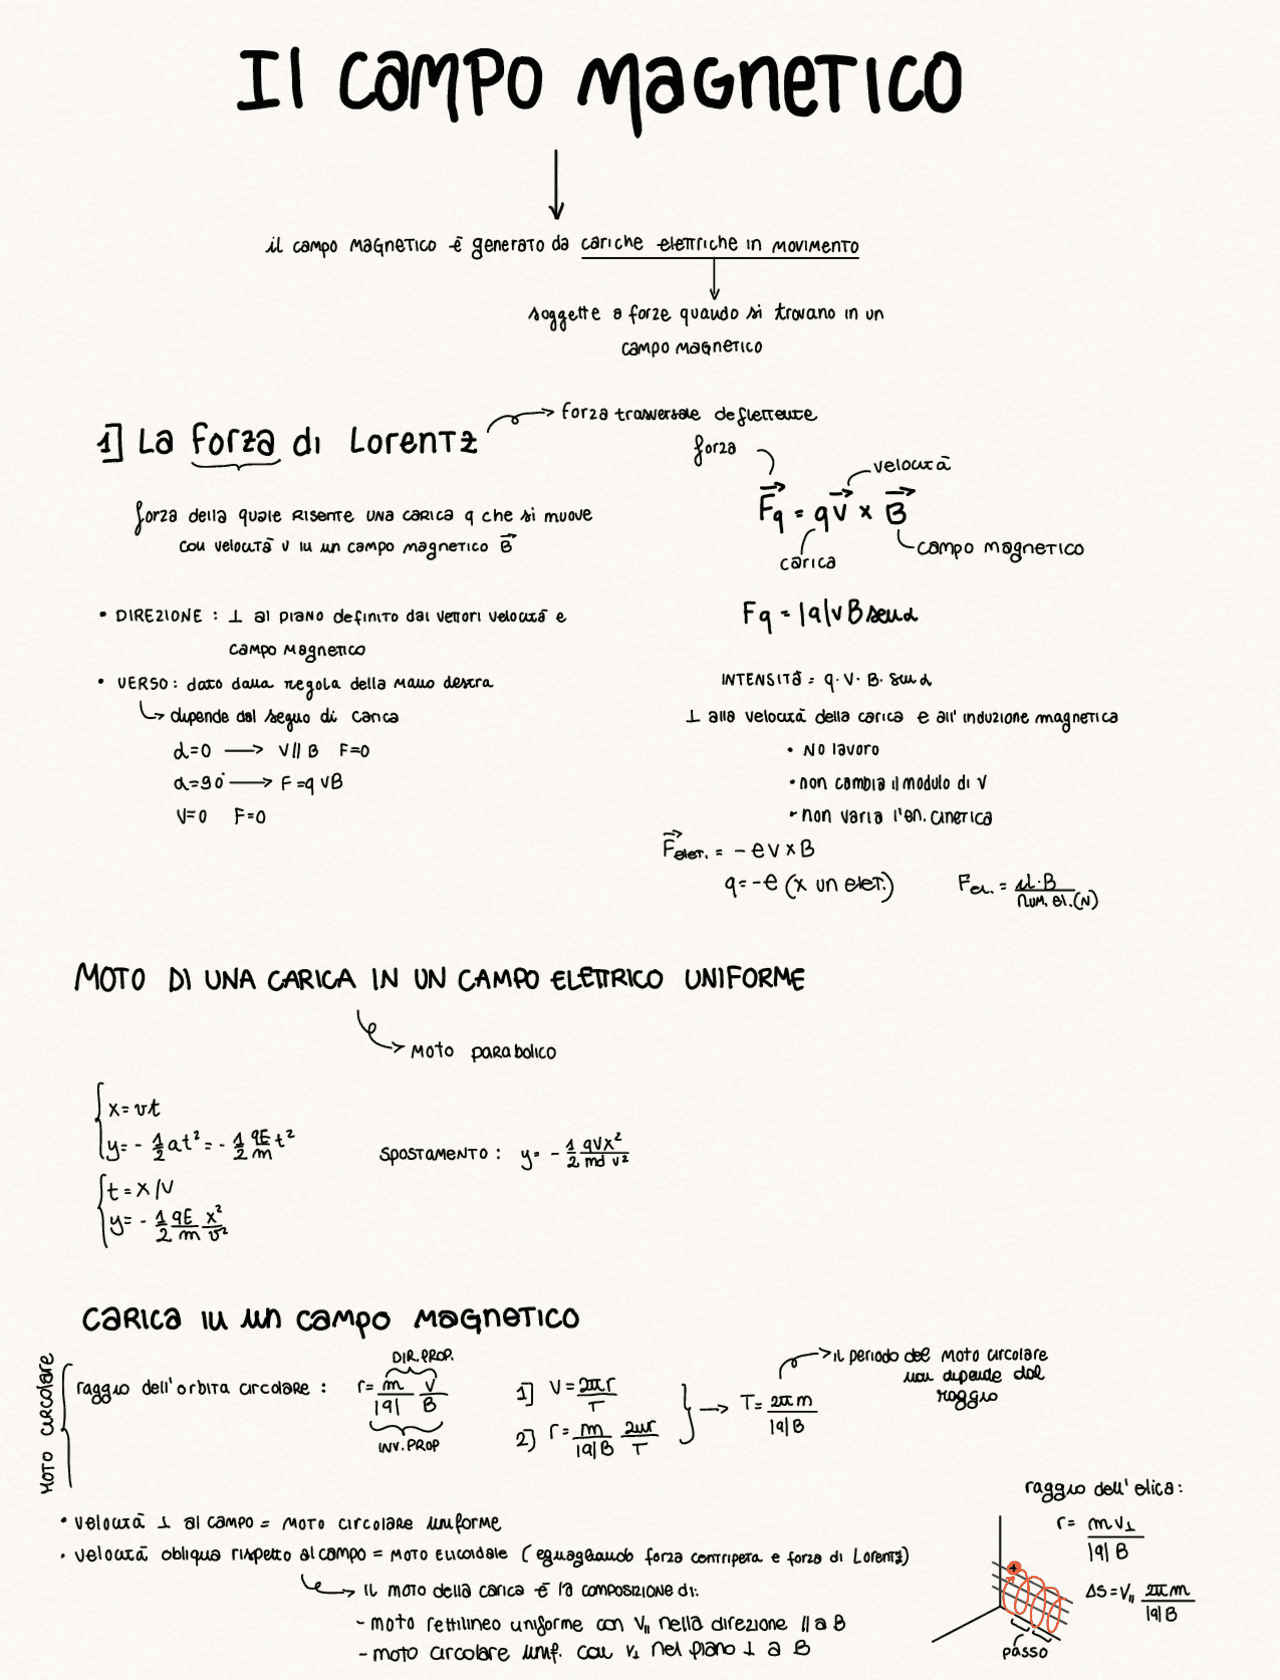 Il campo magnetico
il campo magnetico è generato da cariche elettriche in movimento
soggette a forze quando si trovano in un
campo magnetico
1] La forza di Lorentz
forza trasversale deflettente
forza della quale risente una carica q che si muove
con velocità v in un campo magnetico B⃗
forza
velocità
F⃗q = qv⃗ x B⃗
carica
campo magnetico
• DIREZIONE : ⊥ al piano definito dai vettori velocità e
campo magnetico
• VERSO : dato dalla regola della mano destra
↳ dipende dal segno di carica
α=0 → V // B F=0
α=90° → F=qvB
V=0 F=0
Fq = |q|vB senα
INTENSITÀ = q·v·B·senα
⊥ alla velocità della carica e all'induzione magnetica
• No lavoro
• non cambia il modulo di v
• non varia l'en. cinetica
F⃗elet. = -ev x B
q=-e (x un elet.)
Fel. = il·B / num. el.(N)
MOTO DI UNA CARICA IN UN CAMPO ELETTRICO UNIFORME
→ moto parabolico
x=vt
y= - 1/2 at² = - 1/2 qE/m t²
t = x/v
y= - 1/2 qE/m x²/v²
SPOSTAMENTO : y= - 1/2 qVx²/md v²
CARICA in un campo magnetico
MOTO CIRCOLARE
raggio dell'orbita circolare :
DIR. PROP.
r= m/|q| v/B
INV. PROP
1] V = 2πr/T
2] r= m/|q|B 2πr/T
→ T= 2πm/|q|B
→ il periodo del moto circolare
non dipende dal
raggio
• velocità ⊥ al campo = moto circolare uniforme
• velocità obliqua rispetto al campo = moto elicoidale (eguagliando forza centripeta e forza di Lorentz)
→ Il moto della carica è la composizione di:
- moto rettilineo uniforme con v∥ nella direzione // a B
- moto circolare unif. con v⊥ nel piano ⊥ a B
raggio dell'elica:
r= mv⊥/|q|B
Δs=v∥ 2πm/|q|B
+
passo